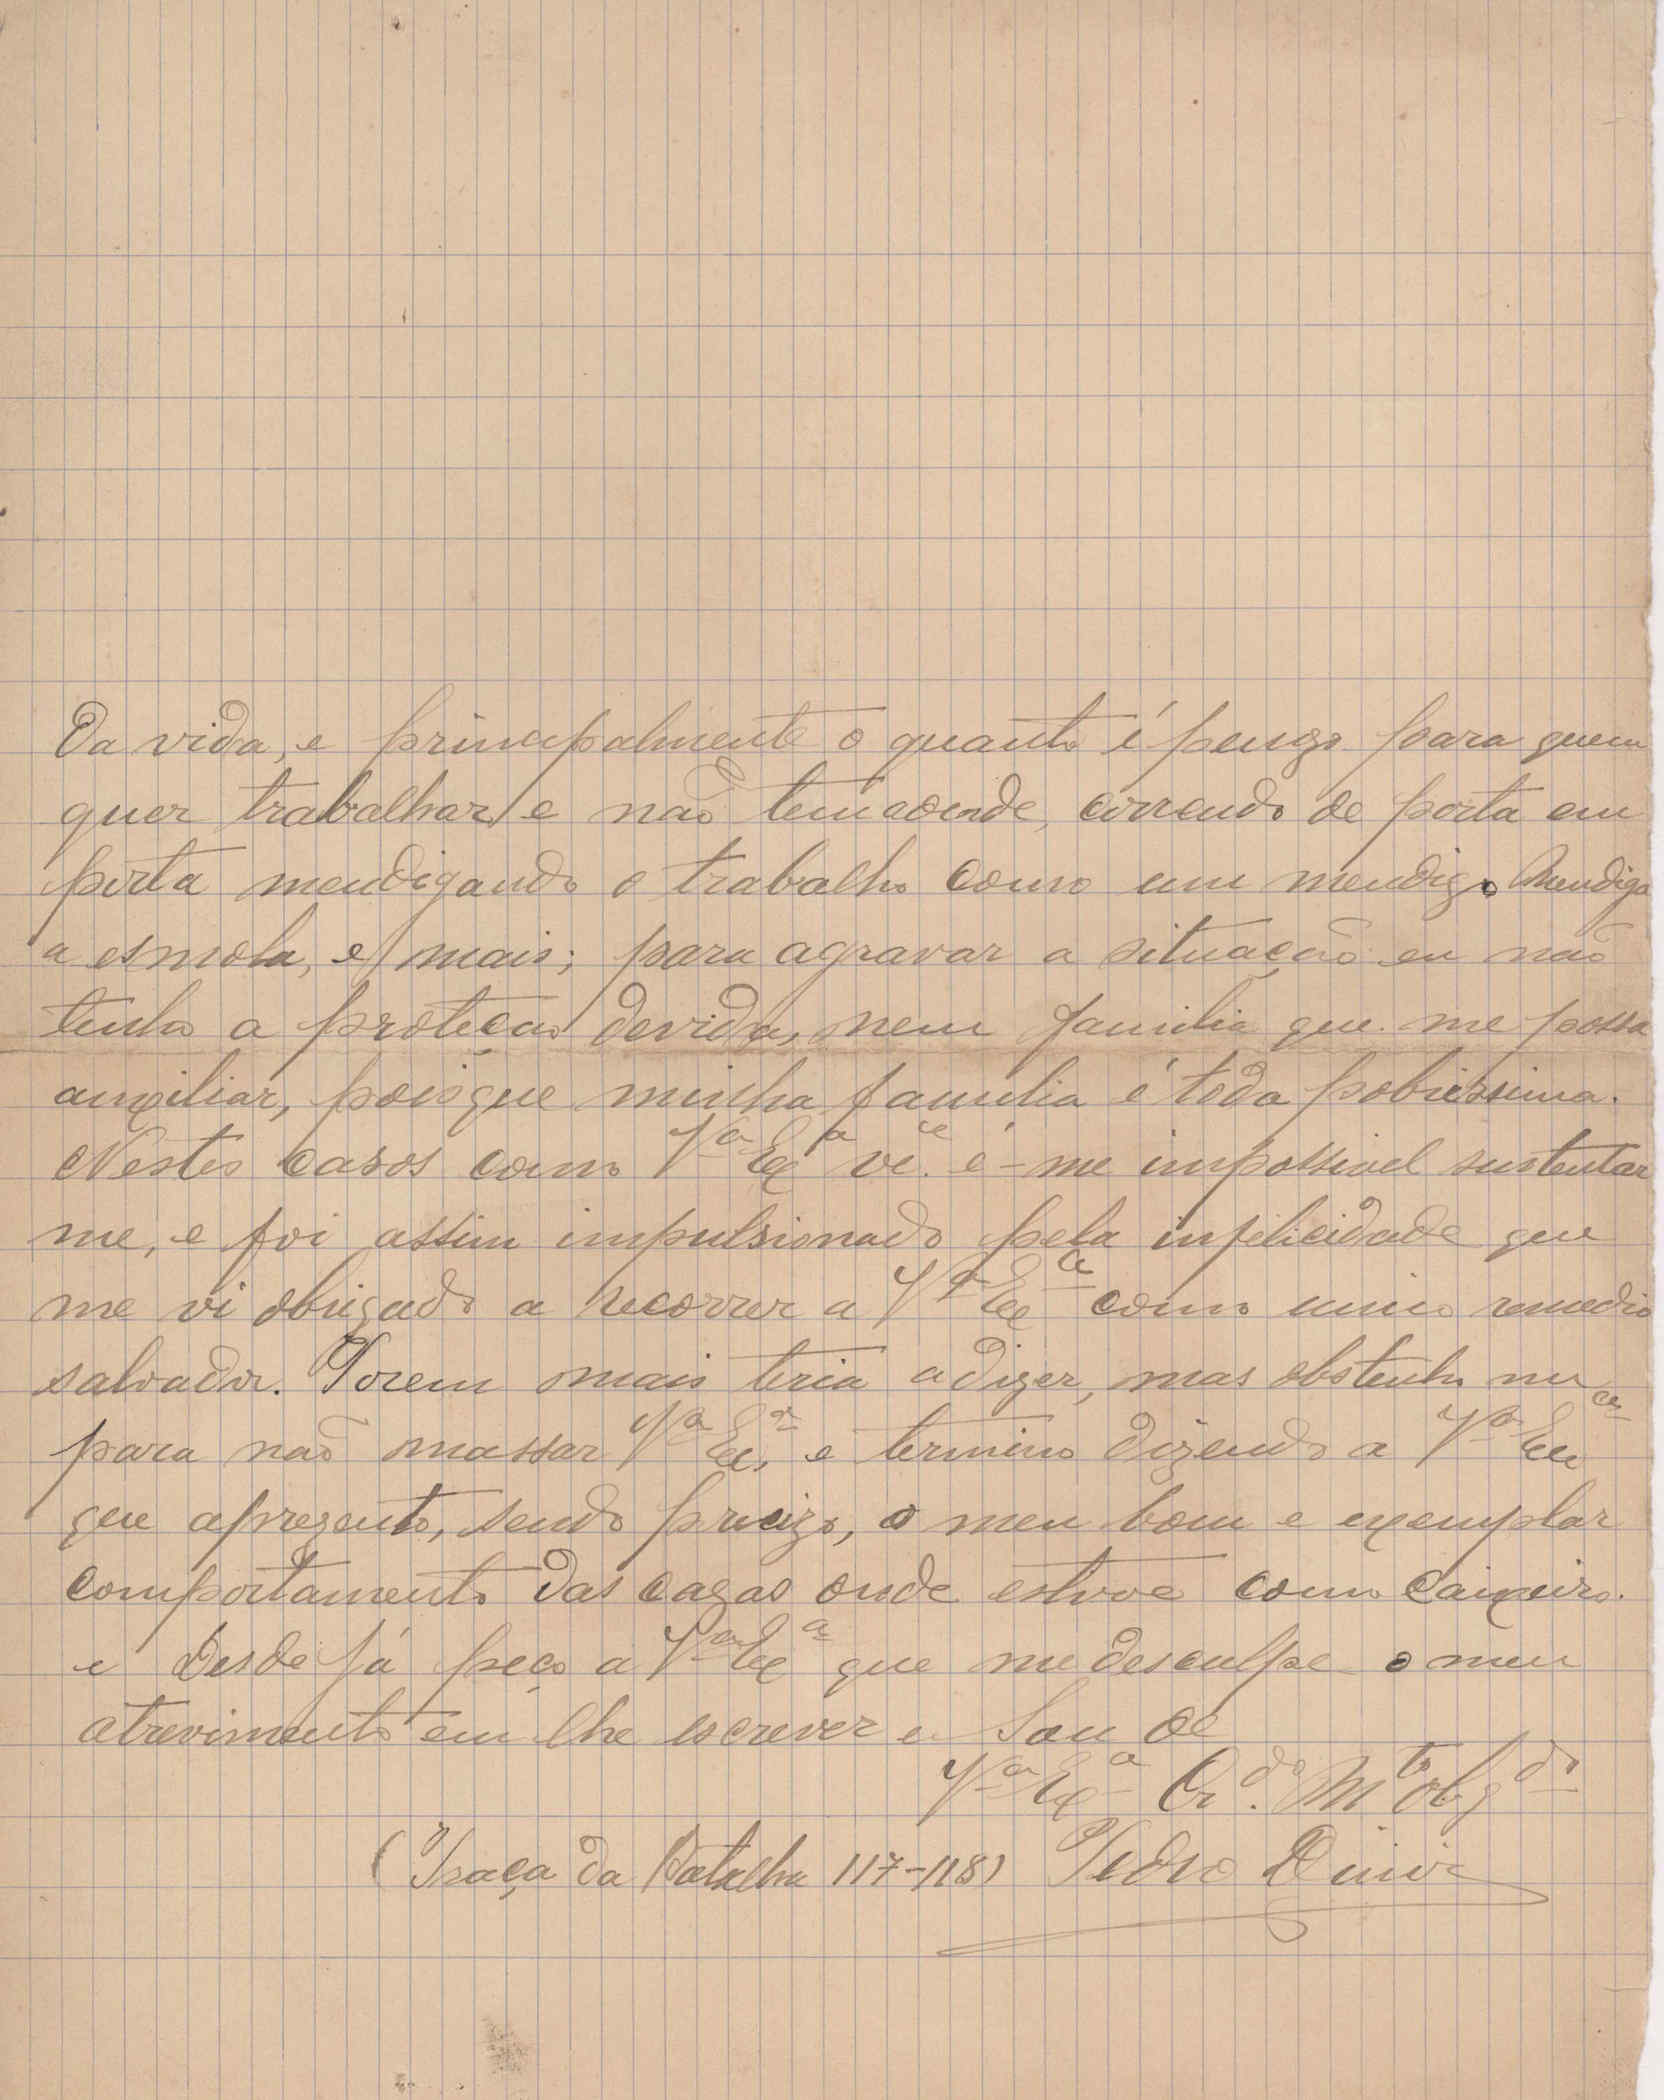 Da vida, e principalmente o quanto é penozo para quem
quer trabalhar, e não tem aonde, correndo de porta em
porta mendigando o trabalho como um mendigo mendiga
a esmola, e mais; para agravar a situação eu não
tenho a proteção devida, nem familia que me possa
auxiliar, pois que minha familia é toda pobrissima.
Nestes casos como Vª Exª vê é-me impossivel sustentar
me, e foi assim impulsionado pela infelicidade que
me vi obrigado a recorrer a Vª Exª como unico remedio
salvador. Porem mais teria a dizer, mas obstenho me
para não massar Vª Exª, e termino dizendo a Vª Exª
que aprezento, sendo precizo, o meu bom e exemplar
comportamento das cazas onde estive como caixeiro.
e Desde já peço a Vª Exª que me desculpe o meu
atrevimento em lhe escrever e Sou de
Vª Exª Crdo. Mto obgdo
(Praça da Batalha 117-118) Pedro Diniz